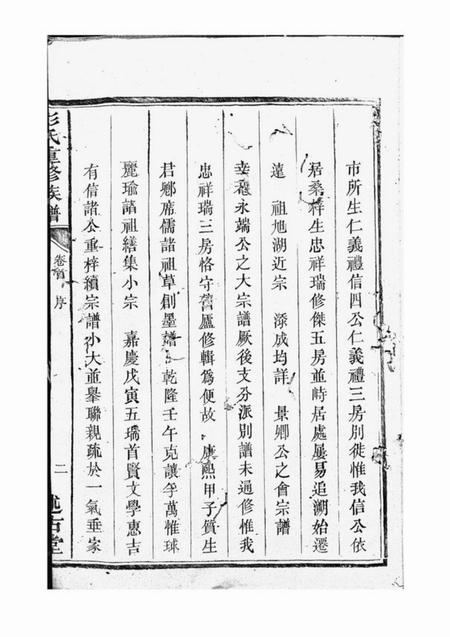 市所生仁義禮信四公仁義禮三房別徙惟我信公依
居桑梓生忠祥瑞修傑五房並時居處屢易追溯始遷
遠 祖旭湖近宗 添成均詳 景卿公之會宗譜
永端公之大宗譜厥後支分派別譜未通修惟我
忠祥瑞三房恪守舊廬修輯爲便故 康熙甲子質生
君鄉席儒諸祖草創墨譜 乾隆壬午克讓 萬惟球
麗瑜諸祖繕集小宗 嘉慶戊寅五瑞首賢文學惠吉
有信諸公重梓續宗譜小大並舉聯親疏於一氣垂家
彭氏重修族譜
卷首 序
二
述古堂